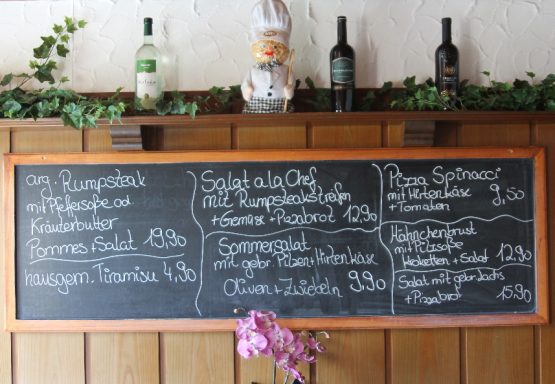 arg. Rumpsteak
mit Pfeffersoße od.
Kräuterbutter
Pommes + Salat 19,90
hausgem. Tiramisu 4,90
Salat a la Chef
mit Rumpsteakstreifen
+ Gemüse + Pizzabrot 12,90
Sommersalat
mit gebr. Pilzen + Hirtenkäse
Oliven + Zwiebeln 9,90
Pizza Spinacci
mit Hirtenkäse
+ Tomaten 9,50
Hähnchenbrust
mit Pilzsoße
Kroketten + Salat 12,90
Salat mit gebr. Lachs
+ Pizzabrot 15,90